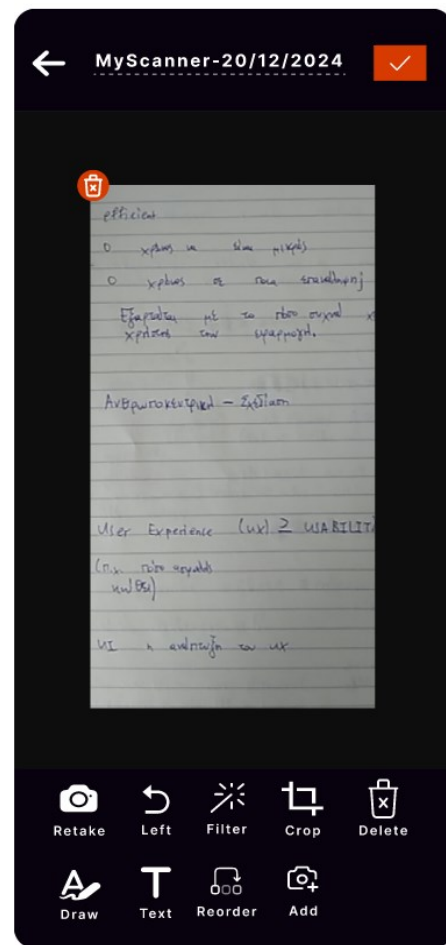 MyScanner-20/12/2024
efficient
Ο χρόνος να είναι μικρός
Ο χρόνος σε ποια επανάληψη;
Εξαρτάται με το πόσο συχνά
χρήστης την εφαρμογή.
Ανθρωποκεντρική – Σχεδίαση
User Experience (UX) ≥ USABILIT
(π.χ. πόσο ασφαλής
UI η ανάπτυξη του UX
Retake Left Filter Crop Delete
Draw Text Reorder Add